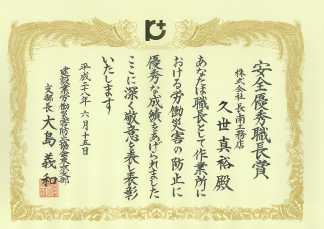 安全優秀職長賞
株式会社 長南工務店
久世真裕 殿
あなたは職長として作業所に
おける労働災害の防止に
優秀な成績をあげられました
ここに深く敬意を表し表彰
いたします
平成二十八年六月十五日
建設業労働災害防止協会東京支部
支部長 大島義和